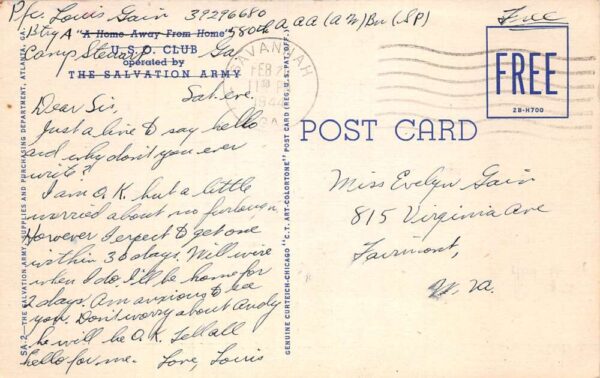 Pfc. Louis Gain 39296680
Btry A "A Home Away From Home" 580th A AA (A W) Bn (SP)
Camp Stewart Ga.
U. S. O. CLUB
operated by
THE SALVATION ARMY
Sat. eve.
Dear Sis,
Just a line to say hello
and why don't you ever
write?
I am O.K. but a little
worried about no furlough.
However I expect to get one
within 30 days. Will wire
when I do. I'll be home for
2 days. Am anxious to see
you. Don't worry about Andy
he will be O.K. Tell all
hello for me. Love, Louis
SA-2—THE SALVATION ARMY, SUPPLIES AND PURCHASING DEPARTMENT, ATLANTA, GA.
GENUINE CURTEICH-CHICAGO "C.T. ART-COLORTONE" POST CARD (REG. U.S. PAT. OFF.)
SAVANNAH
FEB
1944
GA.
POST CARD
Free
FREE
2B-H700
Miss Evelyn Gain
815 Virginia Ave
Fairmont,
W. Va.